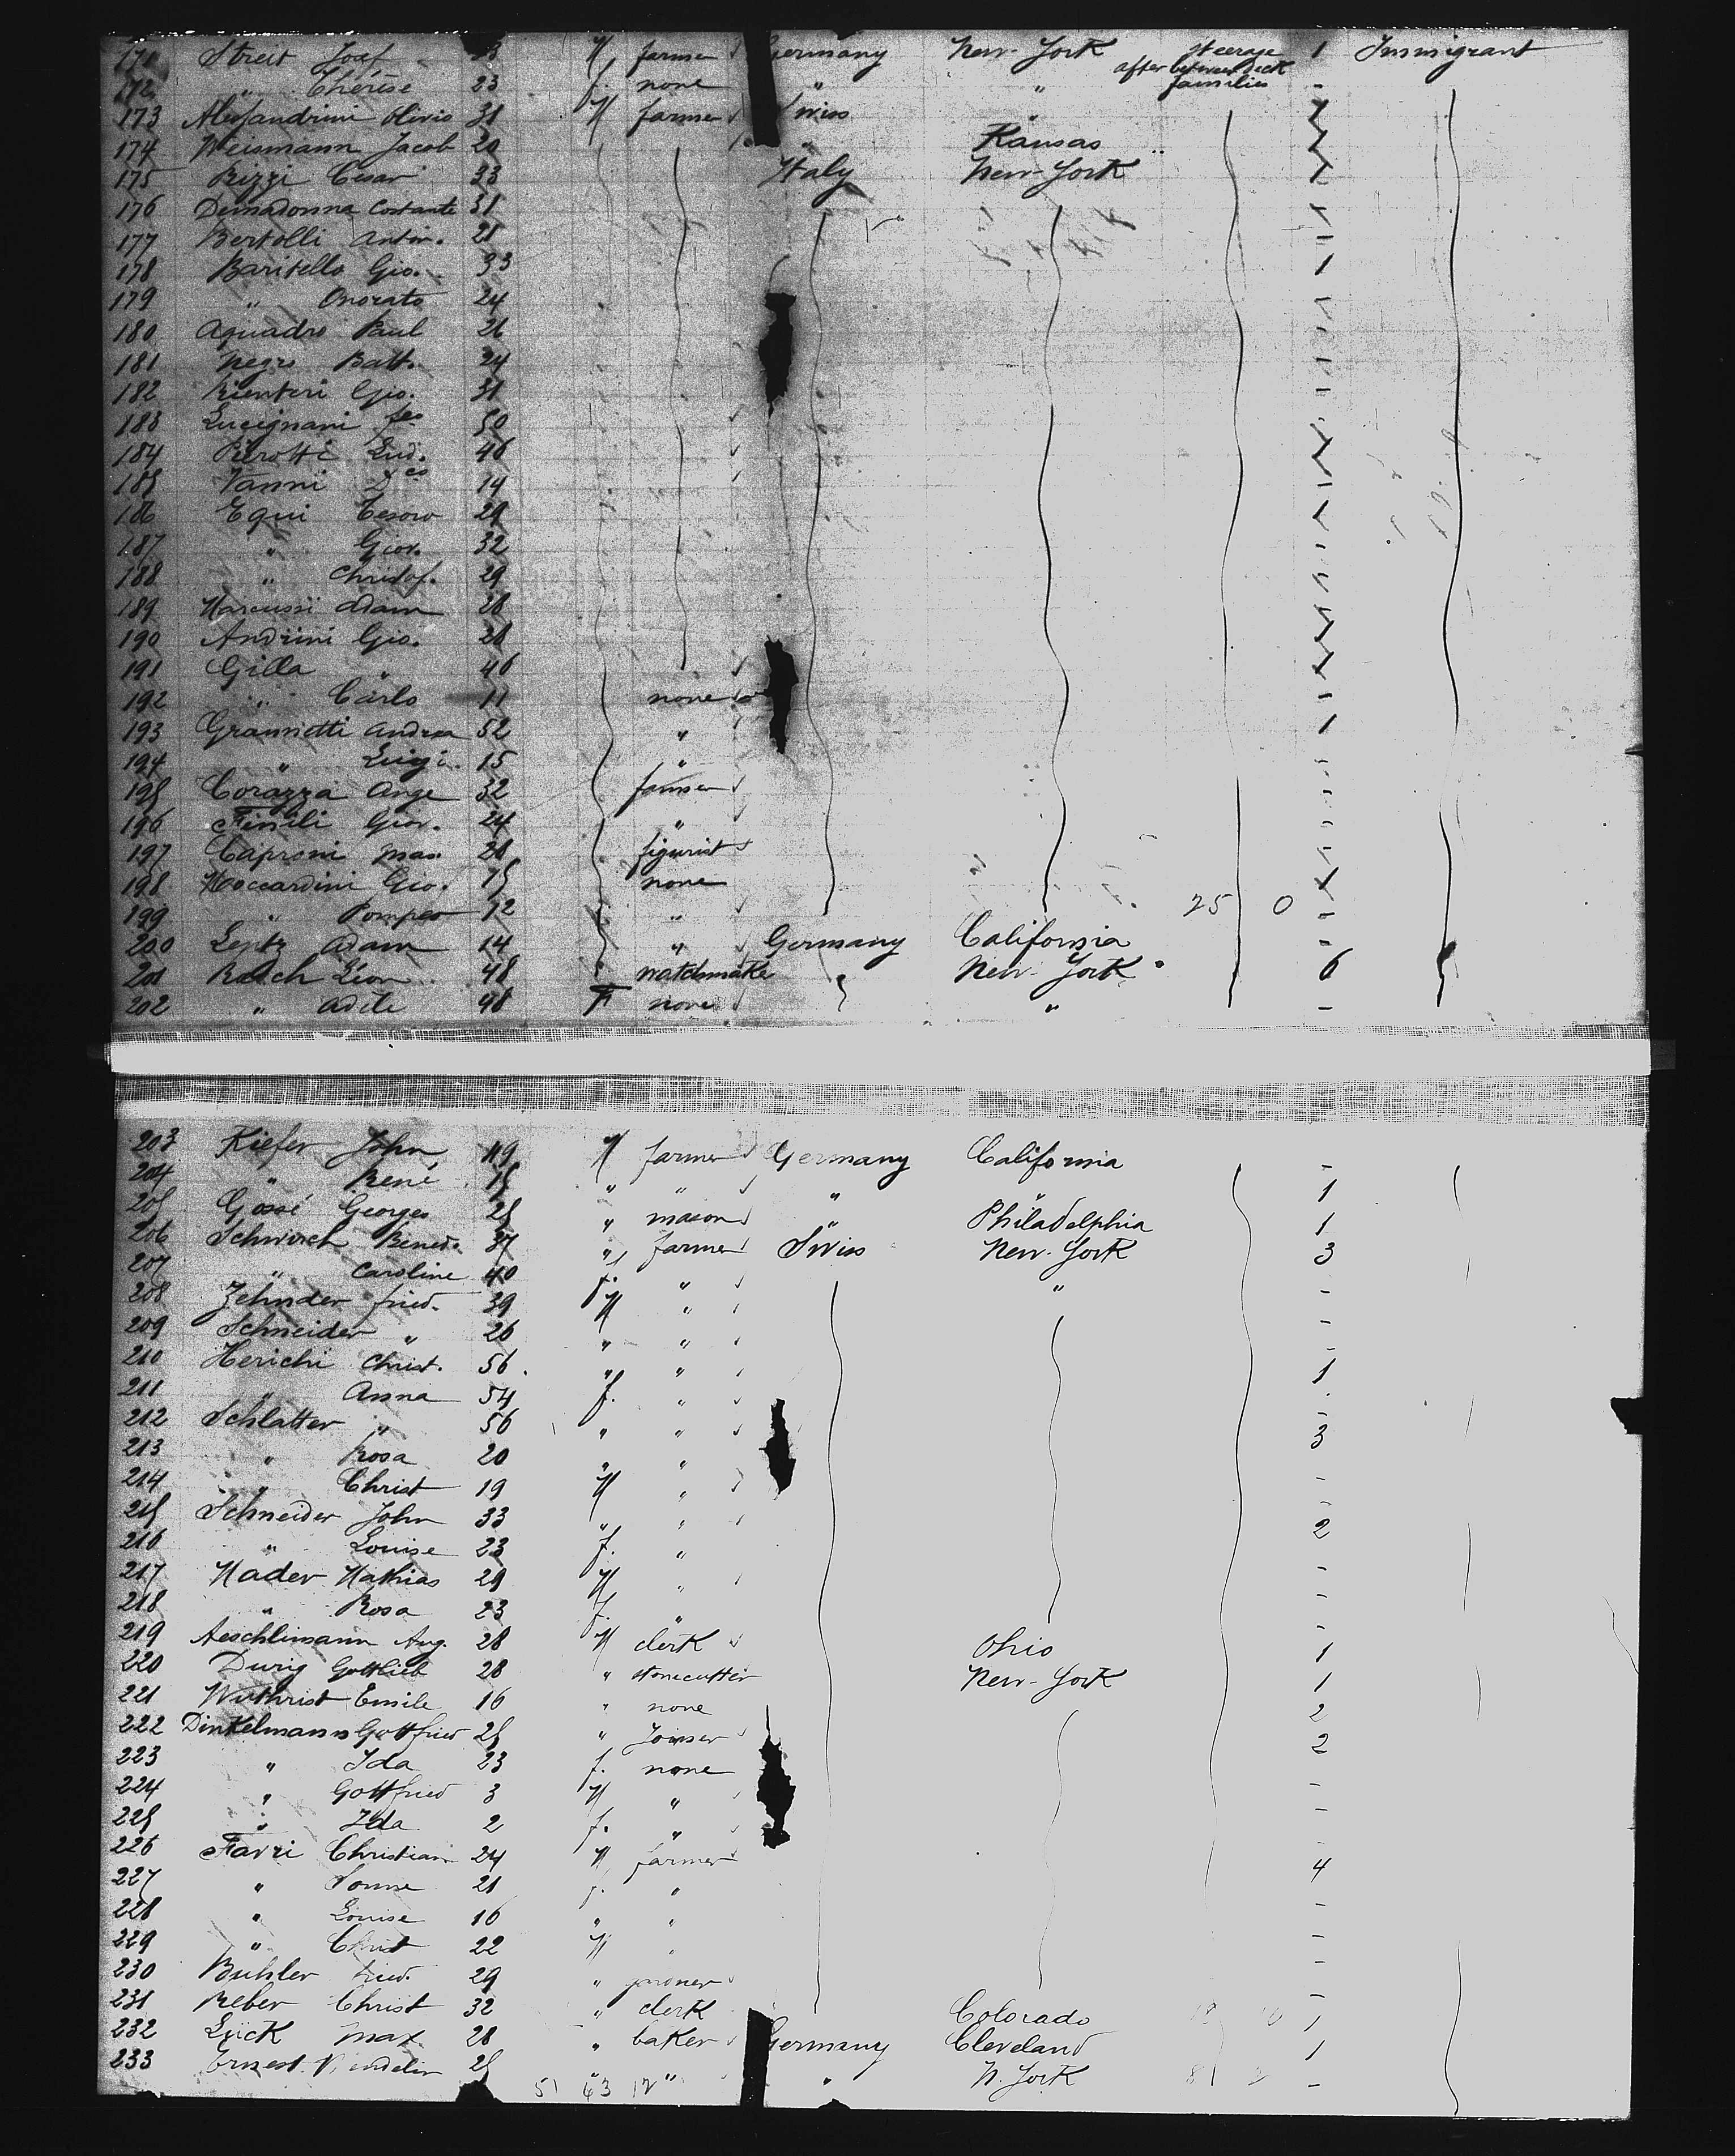 171 Streit Josef M farmer Germany New-York steerage 1 Immigrant
after between deck
172 " Thérèse 23 f. none " " families -
173 Alessandrini Olivio 31 M farmer Swiss "
174 Weismann Jacob 20 " Kansas
175 Rizzi Cesar 33 Italy New-York
176 Demadonna Costante 31
177 Bertolli Anton. 21
178 Baritello Gio. 33
179 " Onorato 24
180 Aquadro Paul 26
181 Negro Batt. 24
182 Gio. 31
183 Lucignani fco 50
184 Pierotti Lud. 46
185 Vanni Dco 14
186 Equi Tesoro 29
187 " Giov. 32
188 " Christof. 29
189 Marcussi Adam 28
190 Andrini Gio. 28
191 Gilla " 46
192 " Carlo 11 none
193 Giannetti Andrea 52 "
194 " Luigi 15 "
195 Corazza Ange 32 farmer
196 Finili Giov. 24 "
197 Caproni Mas. 28 figurist
198 Moccardini Gio. 15 none
199 " Pompeo 12 " 25 0 -
200 Lentz Adam 14 " Germany California -
201 Léon 48 watchmaker " New-York 6
202 " Adèle 48 F none " -
203 Kiefer John 49 M farmer Germany California -
204 " René 15 " " " " 1
205 Gossé Georges 25 " mason " Philadelphia 1
206 Schwirch Bened. 37 " farmer Swiss New-York 3
207 " Caroline 40 f. " " -
208 Zehnder fried. 39 M " -
209 Schneider " 26 " " -
210 Herichi Christ. 56 " " 1
211 " Anna 54 f. " -
212 Schlatter " 56 " " 3
213 " Rosa 20 " " -
214 " Christ 19 M " -
215 Schneider John 33 " " 2
216 " Louise 23 f. " -
217 Mader Mathias 29 M " -
218 " Rosa 23 f. " -
219 Aeschlimann Aug. 28 M clerk Ohio 1
220 Durig Gottlieb 28 " stonecutter New-York 1
221 Wuthrist Emile 16 " none 2
222 Dinkelmann Gottfried 25 " Joiner 2
223 " Ida 23 f. none -
224 " Gottfried 3 M " -
225 " Ida 2 f. " -
226 Favri Christian 24 M farmer 4
227 " 21 f. " -
228 " Louise 16 " " -
229 " Christ 22 M " -
230 Buhler fried. 29 " -
231 Reber Christ 32 " clerk Colorado 1
232 Lück Max 28 " baker Germany Cleveland 1
233 Ernest 25 " " N. York -
51 63 12